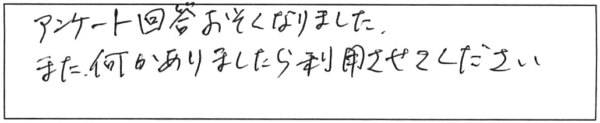 アンケート回答おそくなりました.
また.何かありましたら利用させてください